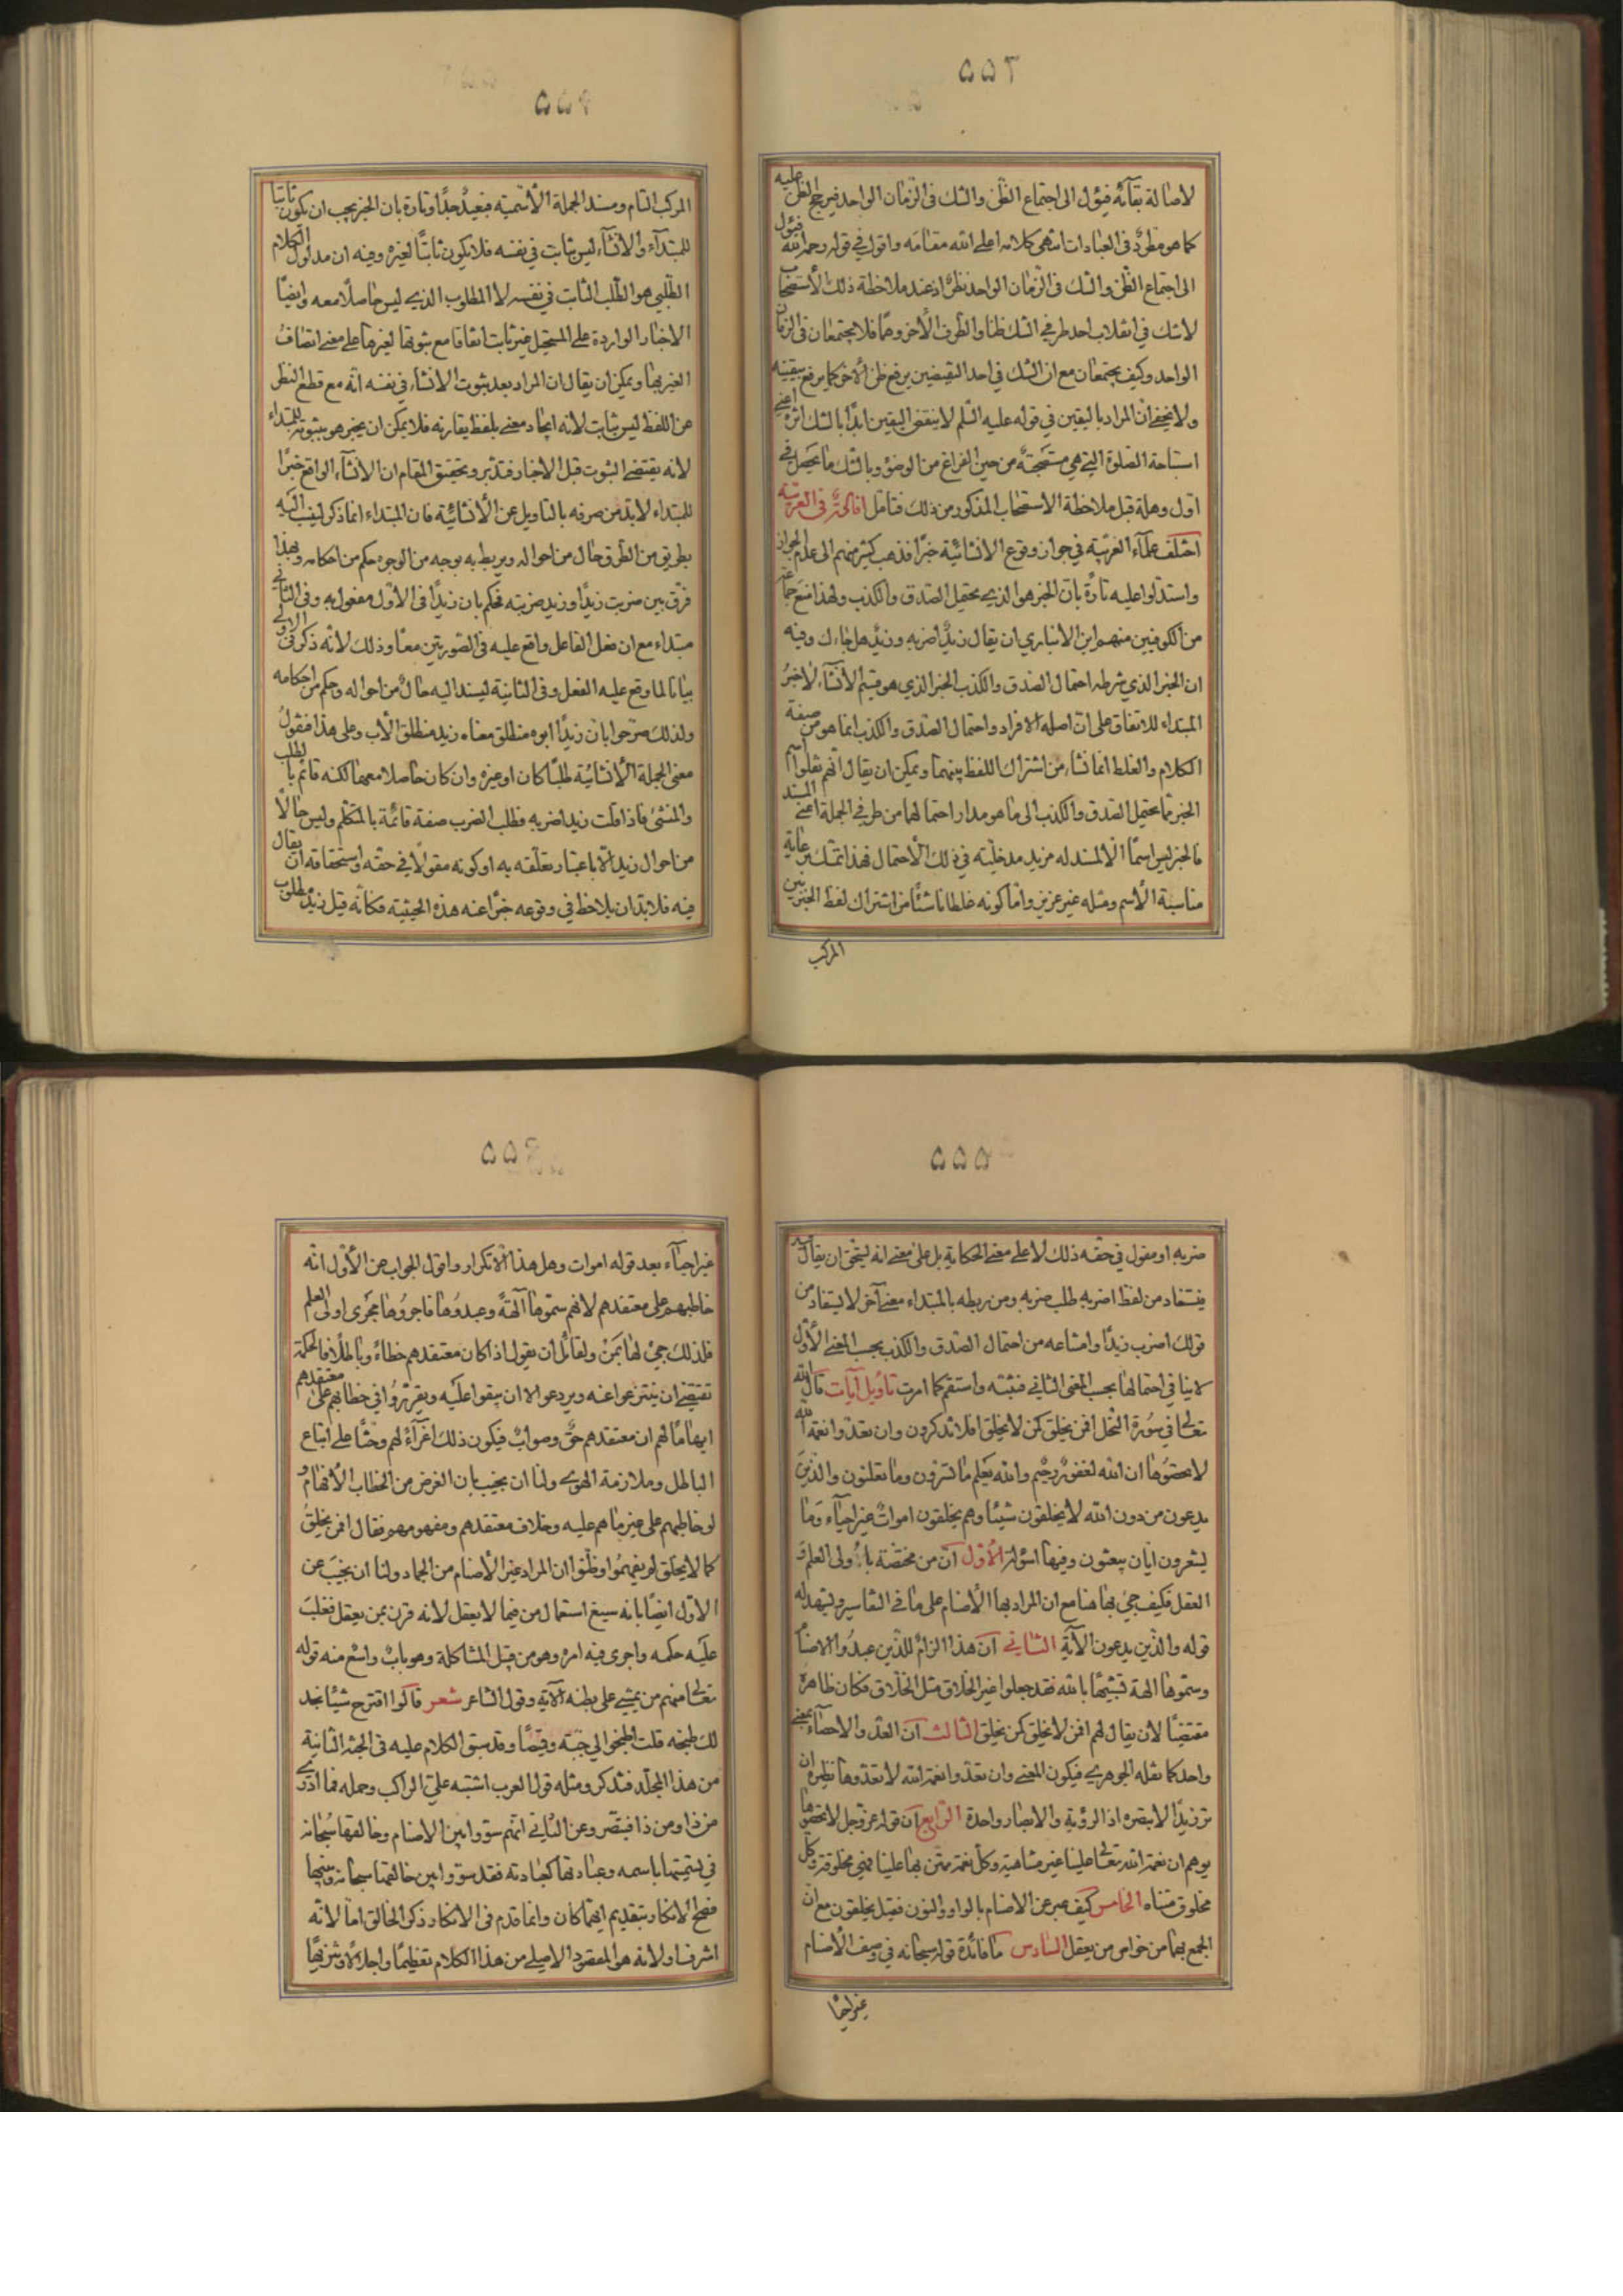 ٥٥٣
لاصالة بقآئه فيؤل الى اجتماع الظن والشك فى الزمان الواحد فيرجح الظن عليه
كما هو مطرد فى العبادات انتهى كلامه اعلى الله مقامه واقول فى قوله رحمه الله فيؤل
الى اجتماع الظن والشك فى الزمان الواحد نظر اذ عند ملاحظة ذلك الاستصحاب
لاشك في انقلاب احد طرفي الشك ظنا والطرف الاخر وهما فلا يجتمعان فى الزمان
الواحد وكيف يجتمعان مع ان الشك في احد النقيضين يرفع ظن الاخر كما يرفع تيقنه
ولا يخفى ان المراد باليقين في قوله عليه السلم لا ينقض اليقين ابدا بالشك اثره اعني
استباحة الصلوة التي هي مستصحبة من حين الفراغ من الوضوء وبالشك ما يحصل في
اول وهلة قبل ملاحظة الاستصحاب المذكور من ذلك فتامل فاكهة فى العربية
اختلف علمآء العربية في جواز وقوع الانشائية خبرا فذهب كثير منهم الى عدم الجواز
واستدلوا عليه تارة بان الخبر هو الذي يحتمل الصدق والكذب ولهذا منع جماعة
من الكوفيين منهم ابن الانباري ان يقال زيد اضربه وزيد هل جاءك وفيه
ان الخبر الذي شرطه احتمال الصدق والكذب الخبر الذي هو قسيم الانشآء لا خبر
المبتداء للاتفاق على ان اصله الافراد واحتمال الصدق والكذب انما هو من صفة
الكلام والغلط انما نشاء من اشتراك اللفظ بينهما ويمكن ان يقال انهم نقلوا اسم
الخبر مما يحتمل الصدق والكذب الى ما هو مدار احتمالهما من طرفي الجملة اعني المسند
فالخبر ليس اسما الا لمسند له مزيد مدخلية في ذلك الاحتمال فهذا تمسك برعاية
مناسبة الاسم ومثله غير عزيز واما كونه غلطا ناشئا من اشتراك لفظ الخبر بين
المركب
٥٥٤
المركب التام ومسند الجملة الاسمية فبعيد جدا وتارة بان الخبر يجب ان يكون ثابتا
للمبتدآء والانشآء ليس بثابت في نفسه فلا يكون ثابتا لغيره وفيه ان مدلول الكلام
الطلبي هو الطلب الثابت في نفسه لا المطلوب الذي ليس حاصلا معه وايضا
الاخبار الواردة على المستحيل غير ثابت اتفاقا مع ثبوتها لغيرها على معنى اتصاف
الغير بها ويمكن ان يقال ان المراد بعد ثبوت الانشاء في نفسه انه مع قطع النظر
عن اللفظ ليس بثابت لانه ايجاد معنى بلفظ يقارنه فلا يمكن ان يخبر هو بثبوته للمبتداء
لانه يقتضي الثبوت قبل الاخبار فتدبر وتحقيق المقام ان الانشآء الواقع خبرا
للمبتداء لابد من صرفه بالتاويل عن الانشائية فان المبتداء انما ذكر لينسب اليه
بطريق من الطرق حال من احواله ويربط به بوجه من الوجوه حكم من احكامه وبهذا
فرق بين ضربت زيدا وزيد ضربته فحكم بان زيدا فى الاول مفعول به وفى الثانى
مبتداء مع ان فعل الفاعل واقع عليه فى الصورتين معا وذلك لانه ذكر فى الاولى
بيانا لما وقع عليه الفعل وفى الثانية ليسند اليه حال من احواله وحكم من احكامه
ولذلك صرحوا بان زيدا ابوه منطلق معناه زيد منطلق الاب وعلى هذا فنقول
معنى الجملة الانشائية طلبا كان او غيره وان كان حاصلا معها لكنه قائم بالطلب
والمنشئ فاذا قلت زيد اضربه فطلب الضرب صفة قائمة بالمتكلم وليس حالا
من احوال زيد الا باعتبار تعلقه به او كونه مقولا في حقه واستحقاقه ان يقال
فيه فلابد ان يلاحظ في وقوعه خبرا عنه هذه الحيثية فكانه قيل زيد مطلوب
٥٥٥
ضربه او مقول في حقه ذلك لا على معنى الحكاية بل على معنى انه يستحق ان يقال فيه
فيستفاد من لفظ اضربه طلب ضربه ومن ربطه بالمبتداء معنى آخر لا يستفاد من
قولك اضرب زيدا وامتناعه من احتمال الصدق والكذب بحسب المعنى الاول
لا ينافي احتمالها بحسب المعنى الثاني فتثبته واستقم كما امرت تاويل آيات قال الله
تعالى في سورة النحل افمن يخلق كمن لا يخلق افلا تذكرون وان تعدوا نعمة الله
لا تحصوها ان الله لغفور رحيم والله يعلم ما تسرون وما تعلنون والذين
يدعون من دون الله لا يخلقون شيئا وهم يخلقون اموات غير احيآء وما
يشعرون ايان يبعثون وفيها اسئولة الاول ان من مختصة باولى العلم و
العقل فكيف جئ بها هنا مع ان المراد بها الاصنام على ما في التفاسير ويشهد له
قوله والذين يدعون الآية الثاني ان هذا الزام للذين عبدوا الاصنام
وسموها الهة تشبيها بالله فقد جعلوا غير الخلاق مثل الخلاق فكان ظاهره
مقتضيا لان يقال لهم افمن لا يخلق كمن يخلق الثالث ان العد والاحصآء بمعنى
واحد كما نقله الجوهري فيكون المعنى وان تعدوا نعمة الله لا تعدوها نظيره ان
تر زيدا لا تبصره اذ الرؤية والابصار واحدة الرابع ان قوله عز وجل لا تحصوها
يوهم ان نعمة الله تعالى علينا غير متناهية وكل نعمة يمتن بها علينا فهي مخلوقة وكل
مخلوق متناه الخامس كيف عبر عن الاصنام بالواو والنون فقيل يخلقون مع ان
الجمع بها من خواص من يعقل السادس ما فائدة قوله سبحانه في وصف الاصنام
غير احيا
٥٥٦
غير احيآء بعد قوله اموات وهل هذا الا تكرار واقول الجواب عن الاول انه
خاطبهم على معتقدهم لانهم سموها آلهة وعبدوها فاجروها مجرى اولى العلم
فلذلك جئ لها بمن ولقائل ان يقول اذا كان معتقدهم خطاء وباطلا فالحكمة
تقتضي ان ينتزعوا عنه ويردعوا لا ان يبقوا عليه ويقرروا في خطابهم على معتقدهم
ايهاما لهم ان معتقدهم حق وصواب فيكون ذلك اغرآء لهم وحثا على اتباع
الباطل وملازمة الهوى ولنا ان نجيب بان الغرض من الخطاب الافهام و
لو خاطبهم على غير ما هم عليه وخلاف معتقدهم ومفهومهم فقال افمن يخلق
كما لا يخلق لم يفهموا وظنوا ان المراد غير الاصنام من الجماد ولنا ان نجيب عن
الاول ايضا بانه سيغ استعمال من فيما لا يعقل لانه قرن بمن يعقل فغلب
عليه حكمه واجرى فيه امره وهو من قبيل المشاكلة وهو باب واسع منه قوله
تعالى فمنهم من يمشي على بطنه الآية وقول الشاعر شعر قالوا اقترح شيئا نجد
لك طبخه قلت اطبخوا لي جبة وقميصا وقد سبق الكلام عليه فى الجثة الثانية
من هذا المجلد فتذكر ومثله قول العرب اشتبه علي الراكب وحمله فما ادرى
من ذا ومن ذا فتبصر وعن الثانى انهم سووا بين الاصنام وخالقها سبحانه
في تسميتها باسمه وعبادتها كعبادته فقد سووا بين خالقها سبحانه وبينها
فصح الانكار بتقديم ايهما كان وانما قدم فى الانكار ذكر الخالق اما لانه
اشرف او لانه هو المقصود الاصلي من هذا الكلام تعظيما واجلالا وتنزيها